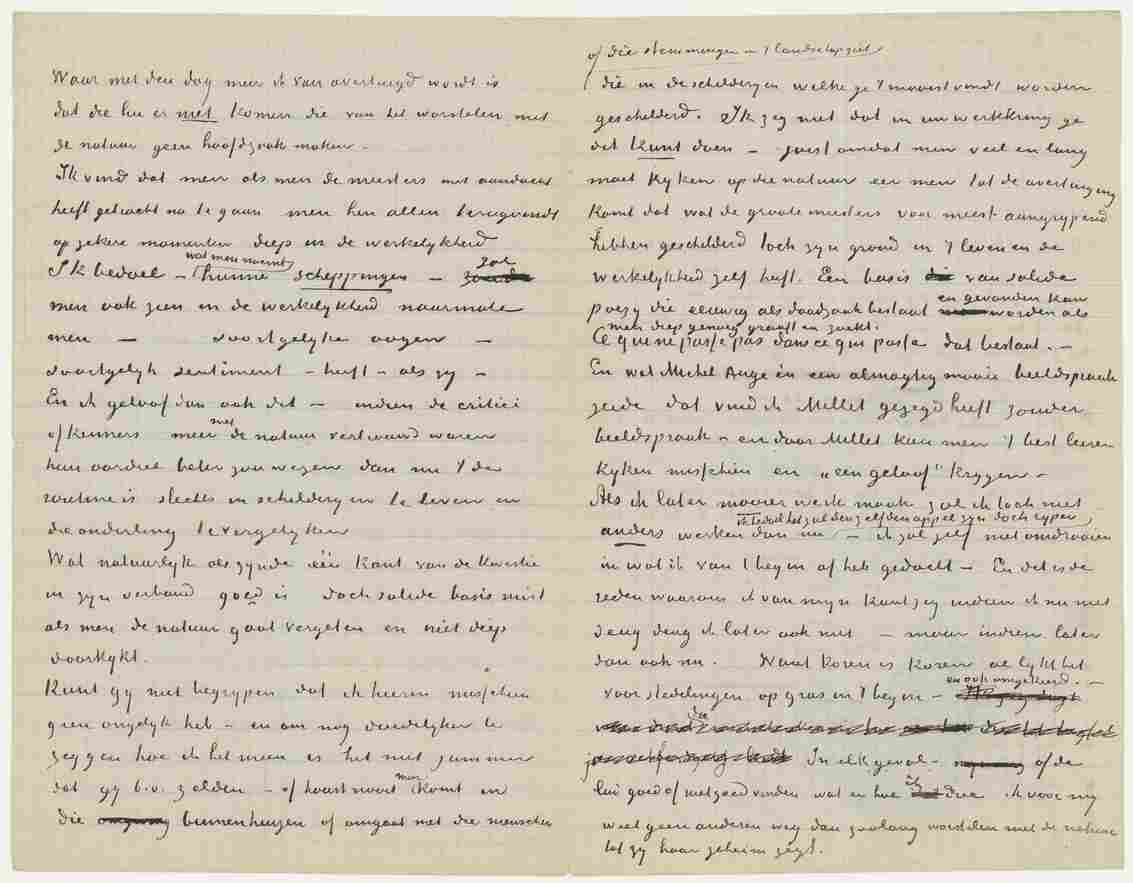 Waar met den dag meer ik van overtuigd wordt is
dat die lui er niet komen die van het worstelen met
de natuur geen hoofdzaak maken –
Ik vind dat men als men de meesters met aandacht
heeft getracht na te gaan men hen allen terugvindt
op zekere momenten diep in de werkelykheid
wat men noemt zal
Ik bedoel – hunne scheppingen –
men ook zien in de werkelykheid naarmate
men – soortgelyke oogen –
soortgelyk sentiment – heeft – als zy –
En ik geloof dan ook dit – indien de critici
met
of kenners meer de natuur vertrouwd waren
hun oordeel beter zou wezen dan nu 't de
routine is slechts in schilderyen te leven en
die onderling te vergelyken
Wat natuurlyk als zynde één kant van de kwestie
in zyn verband goed is doch solide basis mist
als men de natuur gaat vergeten en niet diep
doorkykt.
Kunt gy niet begrypen dat ik hierin misschien
geen ongelyk heb – en om nog duidelyker te
zeggen hoe ik het meen is het niet jammer
men
dat gy b.v. zelden – of haast nooit komt in
die binnenhuizen of omgaat met die menschen
of die stemmingen in 't landschap ziet
die in de schilderyen welke ge 't mooist vindt worden
geschilderd. Ik zeg niet dat in uw werkkring ge
dit kunt doen – juist omdat men veel en lang
moet kyken op die natuur eer men tot de overtuiging
komt dat wat de groote meesters voor meest aangrypend
hebben geschilderd toch zyn grond in 't leven en de
werkelykheid zelf heeft. Een basis van solide
en gevonden kan
poezy die eeuwig als daadzaak bestaat worden als
men diep genoeg graaft en zoekt.
Ce qui ne passe pas dans ce qui passe dat bestaat. –
En wat Michel Ange in een almagtig mooie beeldspraak
zeide dat vind ik Millet gezegd heeft zonder
beeldspraak – en door Millet kan men 't best leeren
kyken misschien en „een geloof” krygen –
Als ik later mooier werk maak zal ik toch niet
ik bedoel het zal denzelfden appel zyn doch ryper
anders werken dan nu – ik zal zelf niet omdraaien
in wat ik van 't begin af heb gedacht – En dit is de
reden waarom ik van myn kant zeg indien ik nu niet
deug deug ik later ook niet – maar indien later
dan ook nu. Want koren is koren al lykt het
en ook omgekeerd. –
voor stedelingen op gras in 't begin –
In elk geval – of de
ik
lui goed of niet goed vinden wat en hoe doe ik voor my
weet geen anderen weg dan zoolang worstelen met de natuur
tot zy haar geheim zegt.